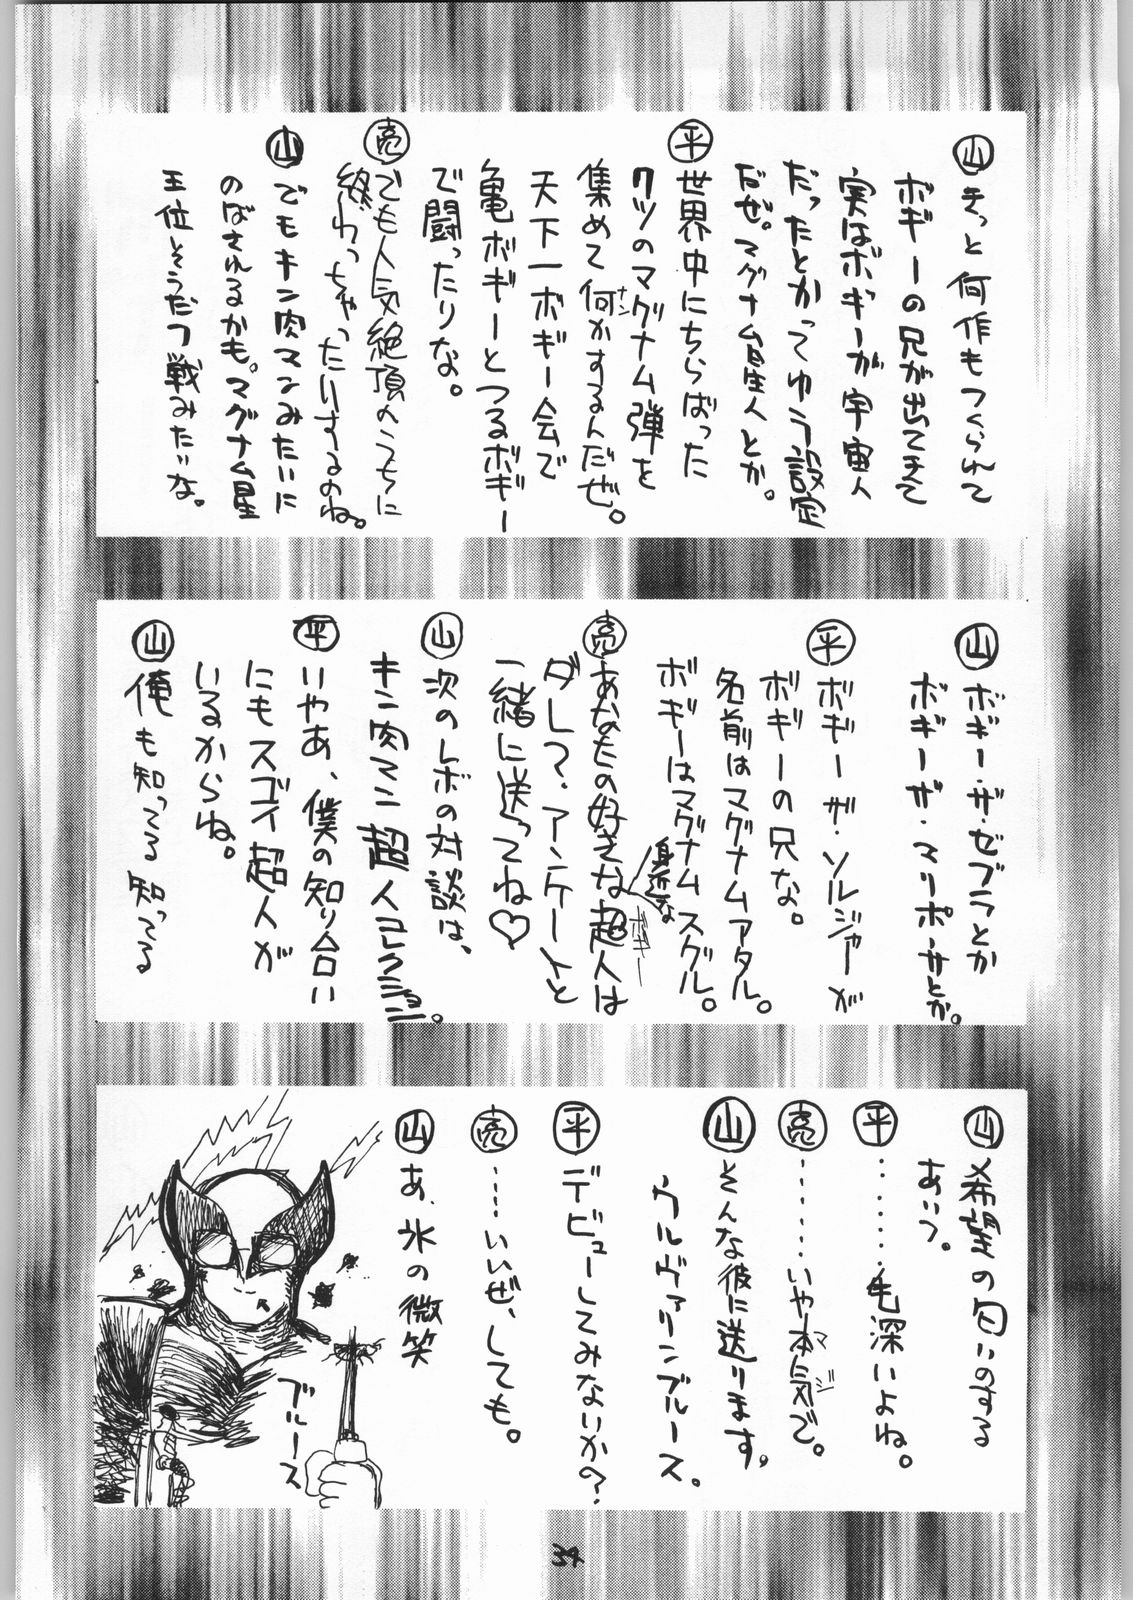 山 きっと何作もつくられて
ボギーの兄が出てきて
実はボギーが宇宙人
だったとかってゆう設定
だぜ。マグナム星人とか。
平 世界中にちらばった
7ツのマグナム弾を
集めて何かするんだぜ。
ナン
天下一ボギー会で
亀ボギーとつるボギー
で闘ったりな。
亮 でも人気絶頂のうちに
終わっちゃったりするのね。
山 でもキン肉マンみたいに
のばされるかも。マグナム星
王位そうだつ戦みたいな。
山 ボギー・ザ・ゼブラとか
ボギー・ザ・マリポーサとか。
平 ボギー・ザ・ソルジャーが
ボギーの兄な。
名前はマグナムアタル。
ボギーはマグナムスグル。
亮 あなたの好きな超人は
身近な
ボギー
ダレ?、アンケートと
一緒に送ってね♡
山 次のレボの対談は、
キン肉マン超人コレクション。
平 いやあ、僕の知り合い
にもスゴイ超人が
いるからね。
山 俺も知ってる知ってる
山 希望の匂いのする
あいつ。
平 ………毛深いよね。
亮 ………いや本気で。
マジ
山 そんな彼に送ります。
ウルヴァリンブルース。
平 デビューしてみないか?
亮 ……いいぜ、しても。
山 あ、氷の微笑
ブルース
34